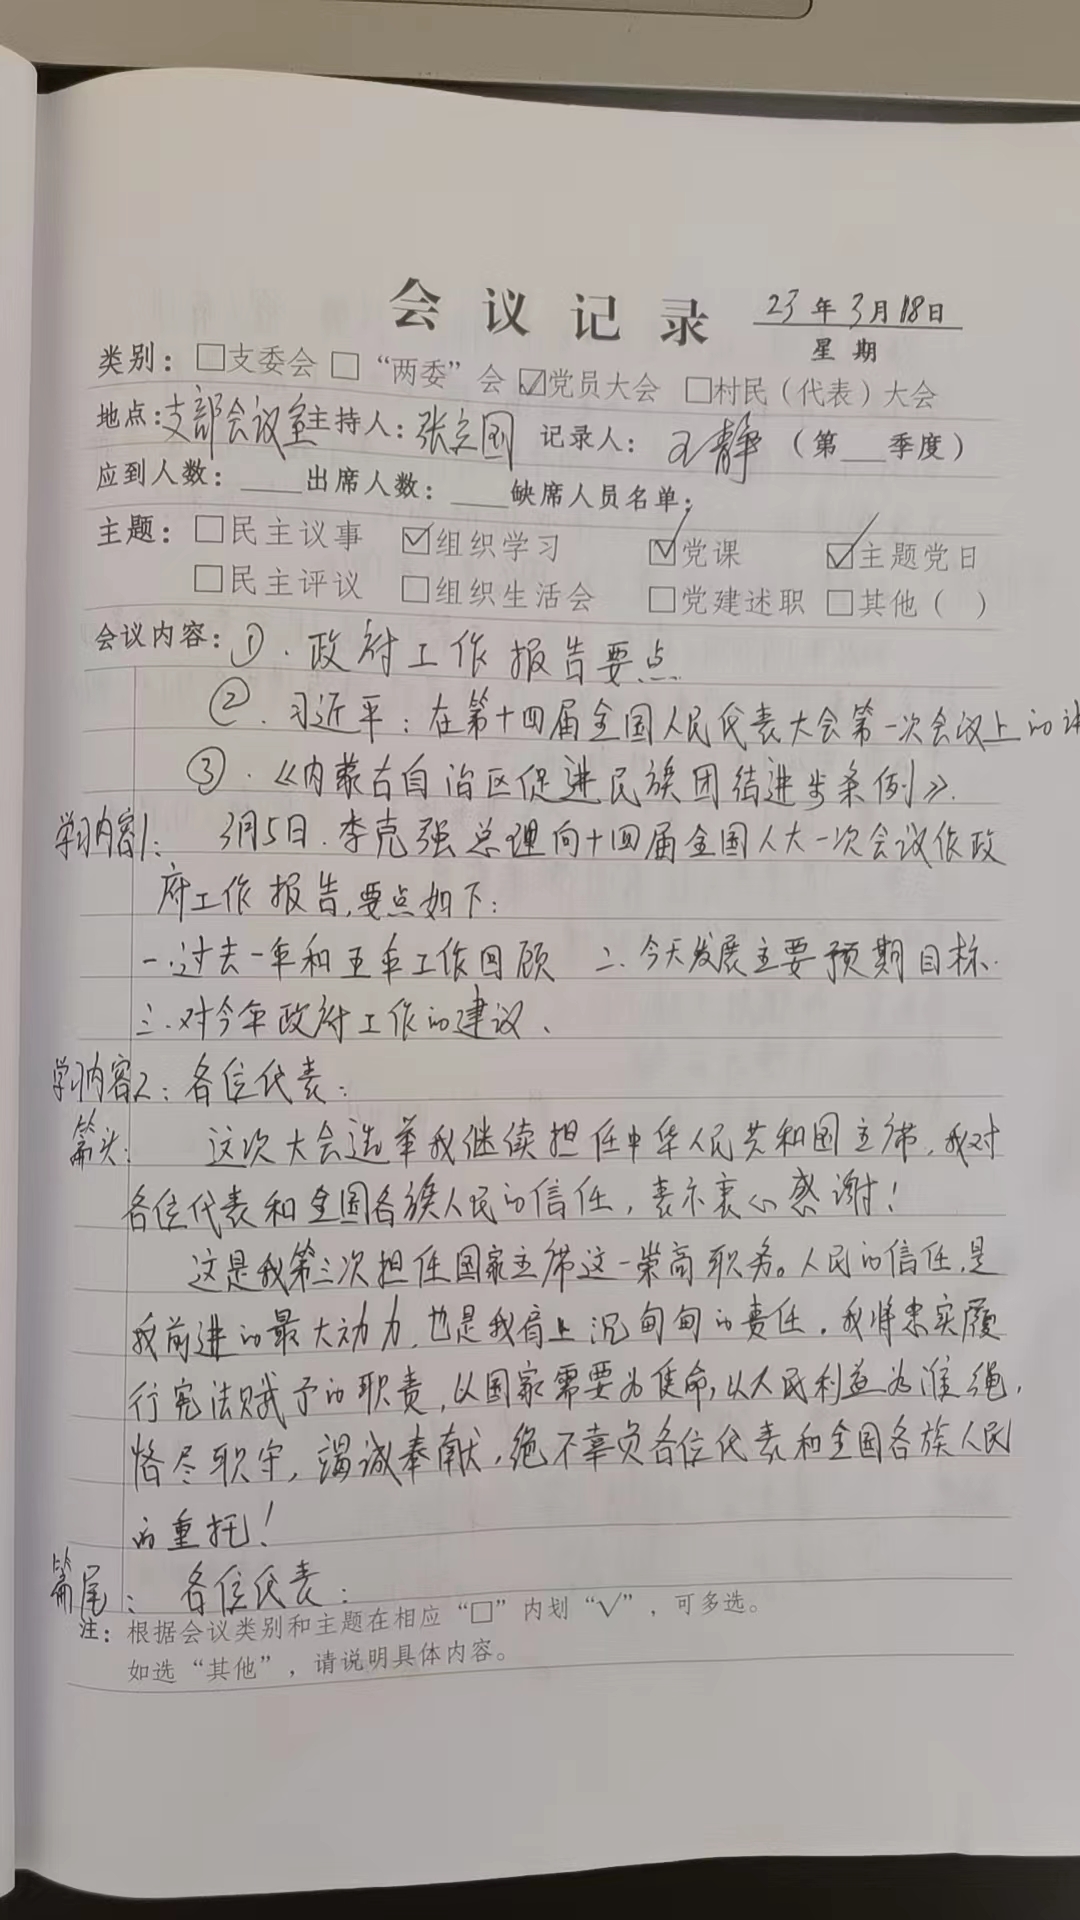 会议记录 23年3月18日
星期
类别：□支委会 □“两委”会 ☑党员大会 □村民（代表）大会
地点：支部会议室 主持人：张立国 记录人：王静（第__季度）
应到人数：____出席人数：____缺席人员名单：
主题：□民主议事 ☑组织学习 ☑党课 ☑主题党日
□民主评议 □组织生活会 □党建述职 □其他（ ）
会议内容：①.政府工作报告要点
②.习近平：在第十四届全国人民代表大会第一次会议上的讲
③.《内蒙古自治区促进民族团结进步条例》.
学习内容1：3月5日.李克强总理向十四届全国人大一次会议作政
府工作报告,要点如下：
一.过去一年和五年工作回顾 二.今天发展主要预期目标.
三.对今年政府工作的建议、
学习内容2：各位代表：
篇头：这次大会选举我继续担任中华人民共和国主席,我对
各位代表和全国各族人民的信任,表示衷心感谢！
这是我第三次担任国家主席这一崇高职务。人民的信任,是
我前进的最大动力,也是我肩上沉甸甸的责任,我将忠实履
行宪法赋予的职责,以国家需要为使命,以人民利益为准绳,
恪尽职守,竭诚奉献,绝不辜负各位代表和全国各族人民
的重托！
篇尾：各位代表：
注：根据会议类别和主题在相应“□”内划“√”，可多选。
如选“其他”，请说明具体内容。